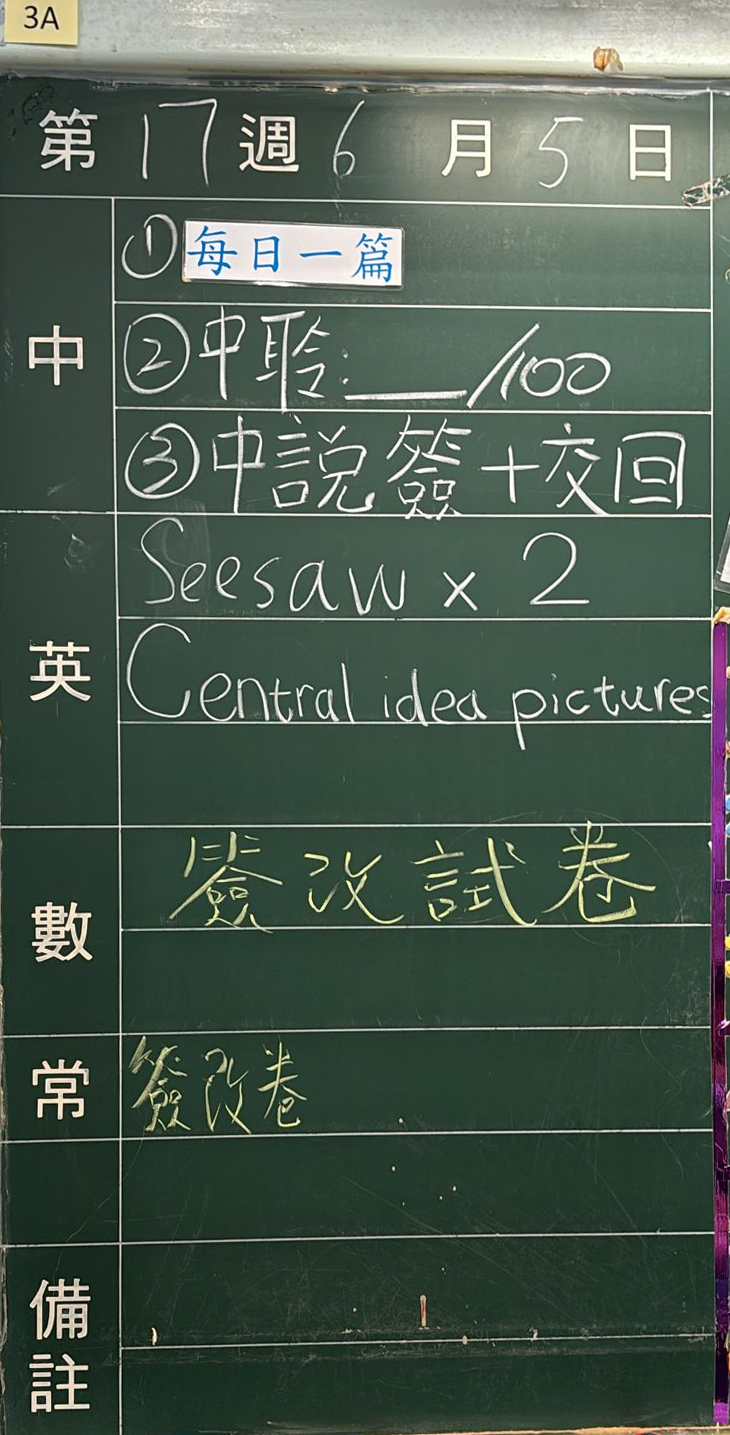 3A
第17週6月5日
中
①每日一篇
②中聆:__/100
③中說簽+交回
英
Seesaw x 2
Central idea pictures
數
簽改試卷
常
簽改卷
備註